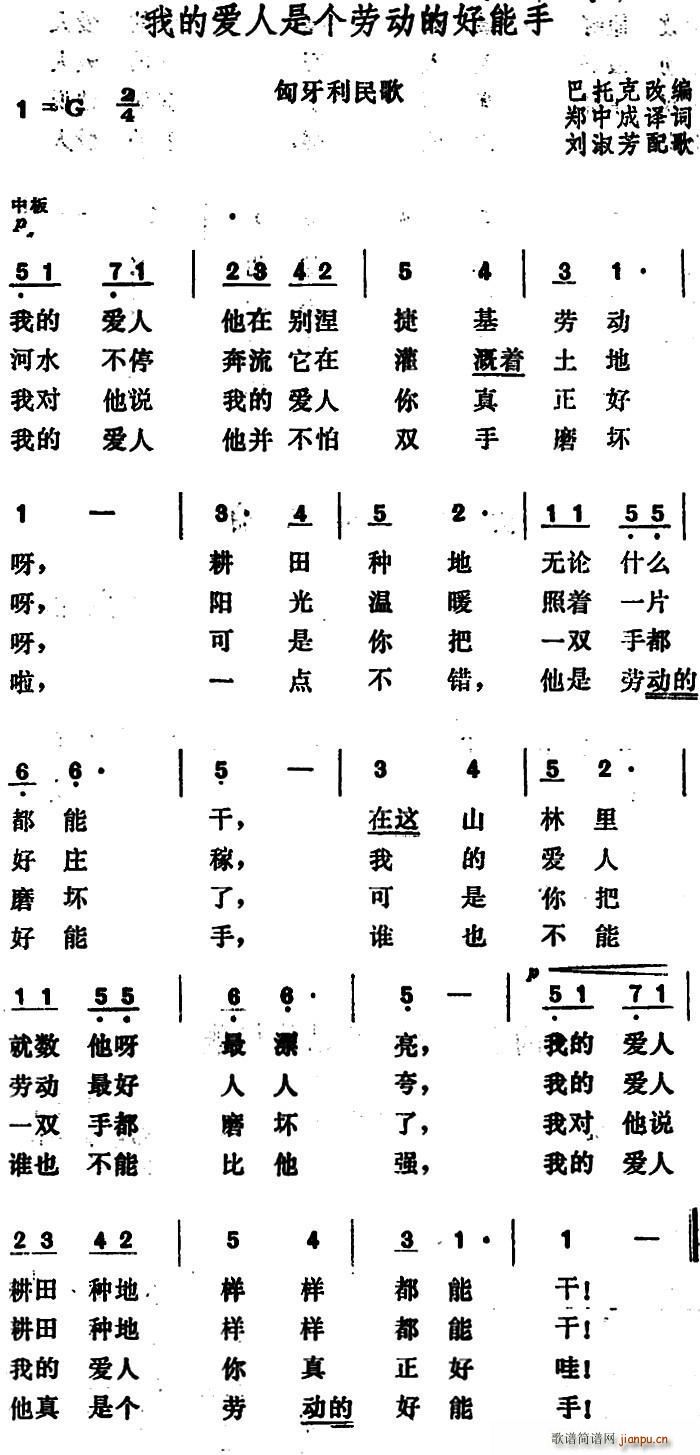 我的爱人是个劳动的好能手
1=G 2/4
匈牙利民歌
巴托克改编
郑中成译词
刘淑芳配歌
中板
p
5 1 7 1 | 2 3 4 2 | 5 4 | 3 1· |
我的 爱人 他在 别涅 捷 基 劳 动
河水 不停 奔流 它在 灌 溉着 土 地
我对 他说 我的 爱人 你 真 正 好
我的 爱人 他并 不怕 双 手 磨 坏
1 — | 3· 4 | 5 2· | 1 1 5 5 |
呀， 耕 田 种 地 无论 什么
呀， 阳 光 温 暖 照着 一片
呀， 可 是 你 把 一双 手都
啦， 一 点 不 错， 他是 劳动的
6 6· | 5 — | 3 4 | 5 2· |
都 能 干， 在这 山 林 里
好 庄 稼， 我 的 爱 人
磨 坏 了， 可 是 你 把
好 能 手， 谁 也 不 能
p
1 1 5 5 | 6 6· | 5 — | 5 1 7 1 |
就数 他呀 最 漂 亮， 我的 爱人
劳动 最好 人 人 夸， 我的 爱人
一双 手都 磨 坏 了， 我对 他说
谁也 不能 比 他 强， 我的 爱人
2 3 4 2 | 5 4 | 3 1· | 1 — ‖
耕田 种地 样 样 都 能 干！
耕田 种地 样 样 都 能 干！
我的 爱人 你 真 正 好 哇！
他真 是个 劳 动的 好 能 手！
歌谱简谱网
jianpu.cn